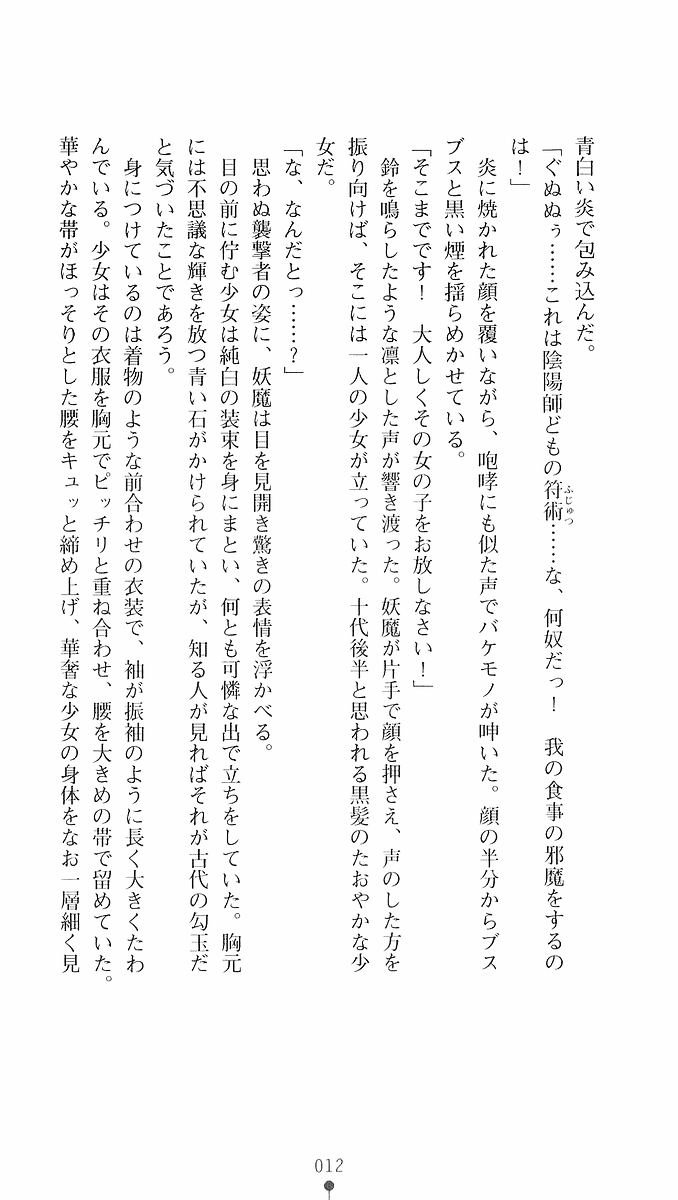 青白い炎で包み込んだ。
「ぐぬぬぅ……これは陰陽師どもの符術……な、何奴だっ！　我の食事の邪魔をするの
ふじゅつ
は！」
　炎に焼かれた顔を覆いながら、咆哮にも似た声でバケモノが呻いた。顔の半分からブス
ブスと黒い煙を揺らめかせている。
「そこまでです！　大人しくその女の子をお放しなさい！」
　鈴を鳴らしたような凛とした声が響き渡った。妖魔が片手で顔を押さえ、声のした方を
振り向けば、そこには一人の少女が立っていた。十代後半と思われる黒髪のたおやかな少
女だ。
「な、なんだとっ……？」
　思わぬ襲撃者の姿に、妖魔は目を見開き驚きの表情を浮かべる。
　目の前に佇む少女は純白の装束を身にまとい、何とも可憐な出で立ちをしていた。胸元
には不思議な輝きを放つ青い石がかけられていたが、知る人が見ればそれが古代の勾玉だ
と気づいたことであろう。
　身につけているのは着物のような前合わせの衣装で、袖が振袖のように長く大きくたわ
んでいる。少女はその衣服を胸元でピッチリと重ね合わせ、腰を大きめの帯で留めていた。
華やかな帯がほっそりとした腰をキュッと締め上げ、華奢な少女の身体をなお一層細く見
012